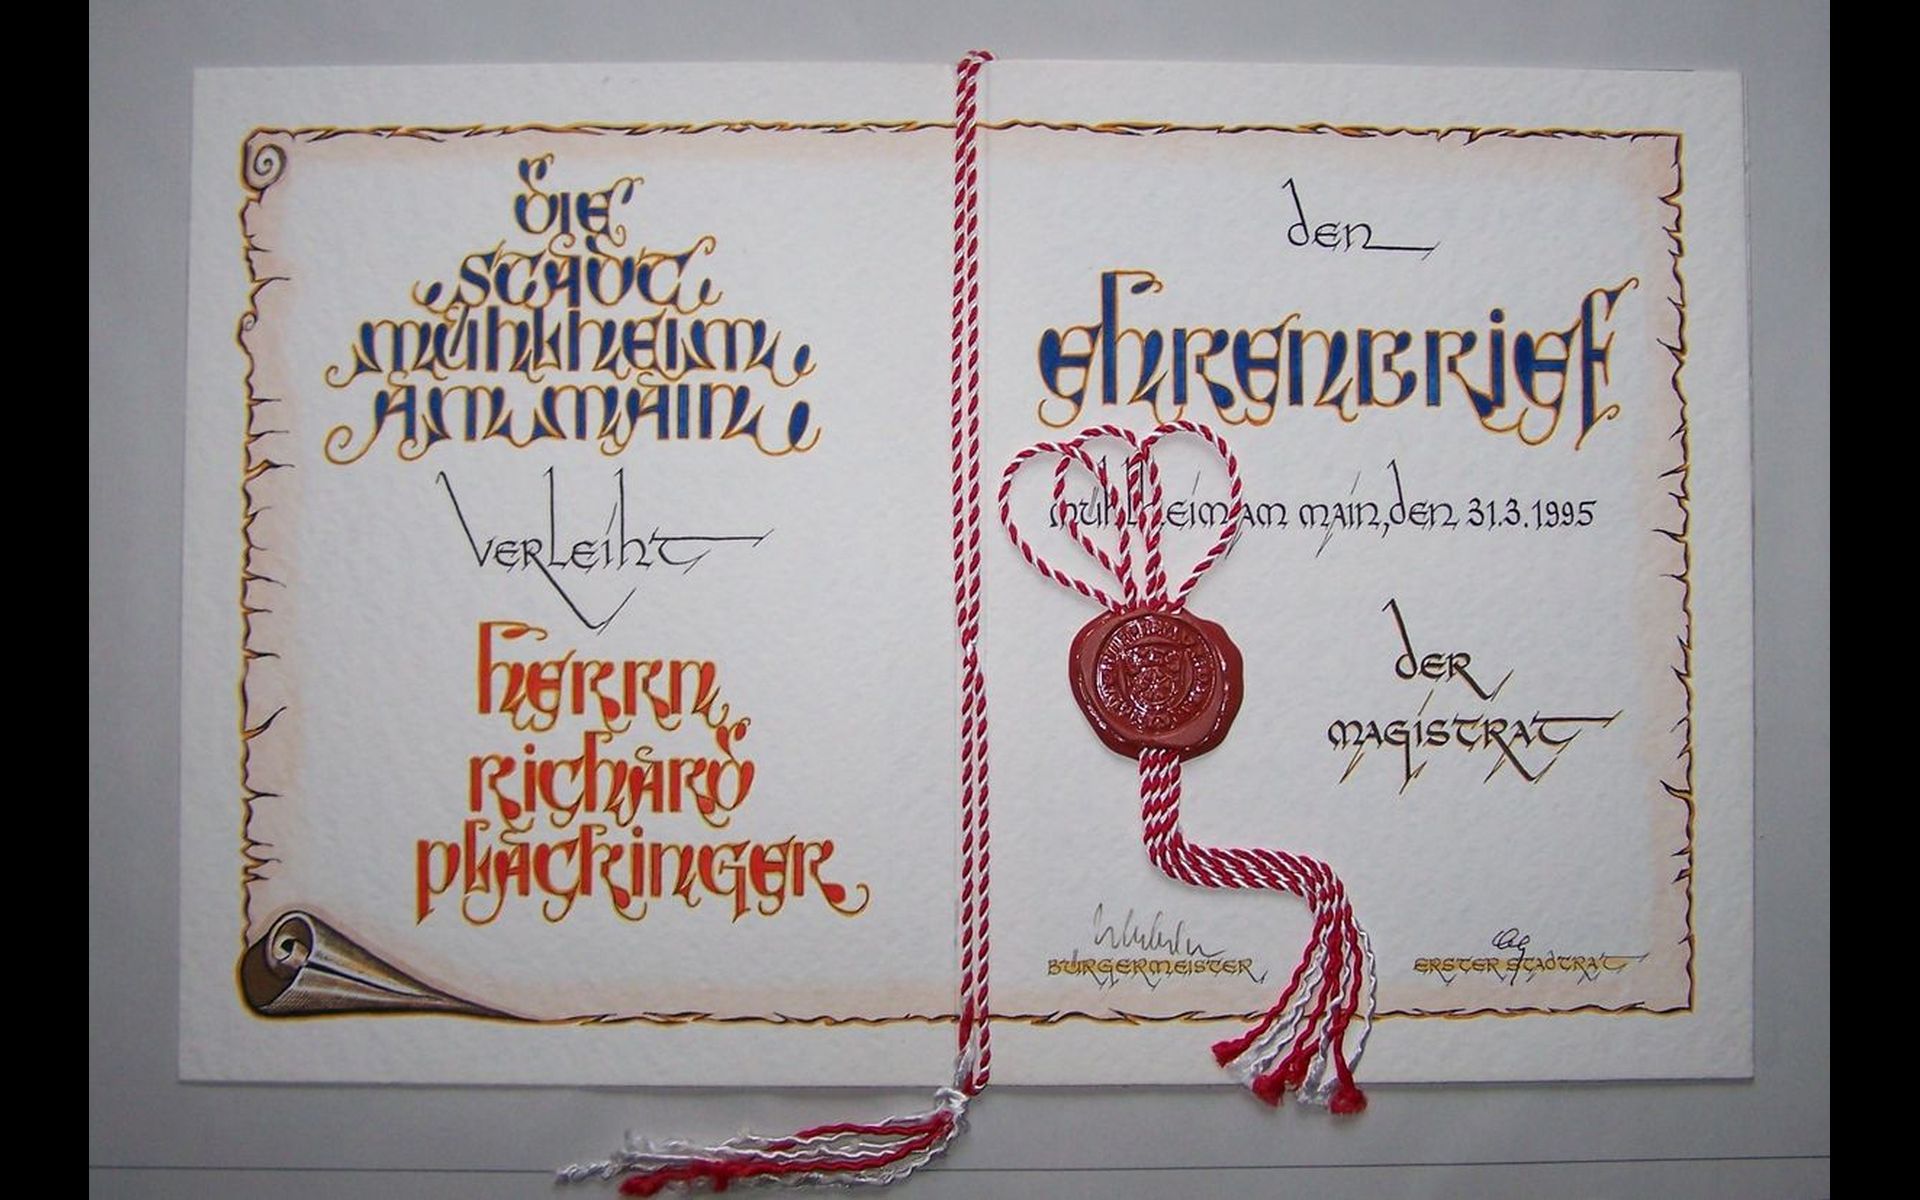 Die
Stadt
Mühlheim
am Main
verleiht
Herrn
Richard
Plackinger
den
Ehrenbrief
Mühlheim am Main, den 31.3.1995
der
Magistrat
Bürgermeister
Erster Stadtrat